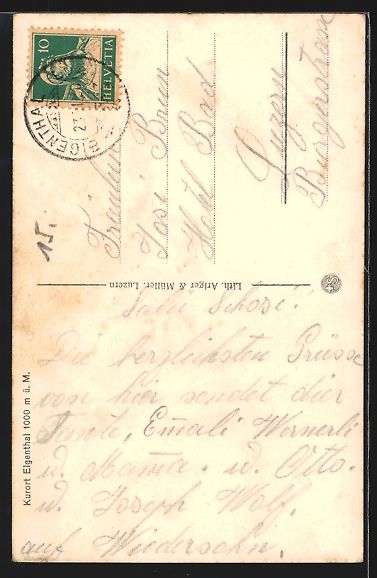 10
HELVETIA
EIGENTHAL
Fräulein
Josi Brun
Hotel Bad
Luzern
Burgerstrasse
15.
Lith. Ariger & Müller, Luzern
Kurort Eigenthal 1000 m ü. M.
Salü Schosi!
Die herzlichsten Grüsse
von hier sendet dir
Tante, Emali Wernerli
u. Mama. u. Otto.
u. Joseph Wolf.
auf Wiedersehn.